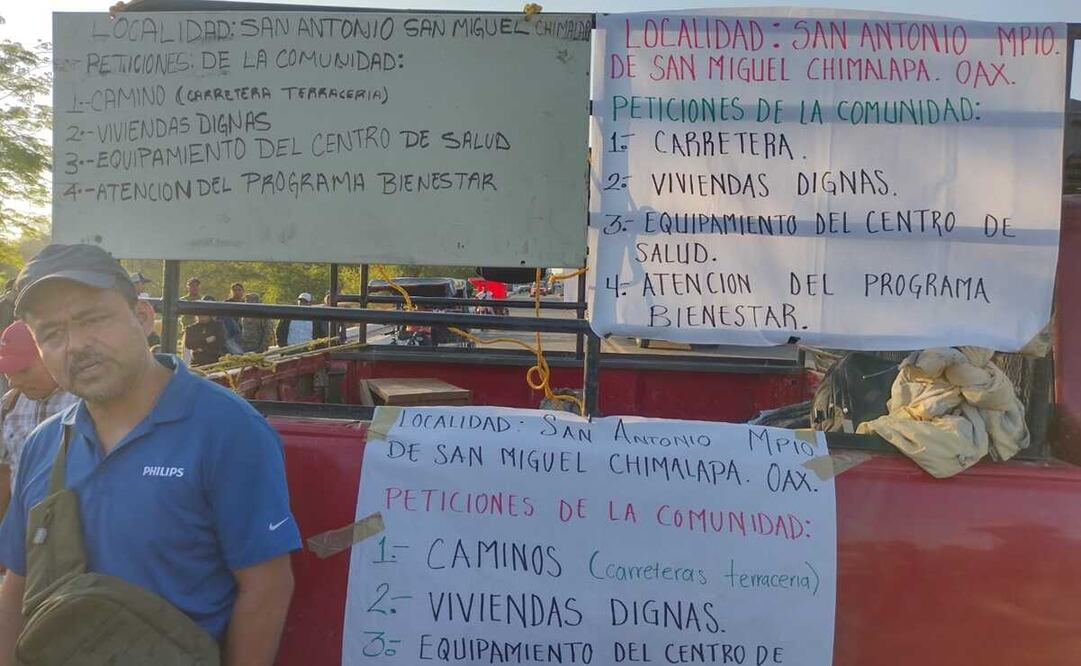 LOCALIDAD: SAN ANTONIO SAN MIGUEL CHIMALAPA
PETICIONES: DE LA COMUNIDAD:
1.-CAMINO (CARRETERA TERRACERIA)
2.-VIVIENDAS DIGNAS
3.-EQUIPAMIENTO DEL CENTRO DE SALUD
4.-ATENCION DEL PROGRAMA BIENESTAR
LOCALIDAD: SAN ANTONIO MPIO.
DE SAN MIGUEL CHIMALAPA. OAX.
PETICIONES DE LA COMUNIDAD:
1.- CARRETERA.
2.- VIVIENDAS DIGNAS.
3.- EQUIPAMIENTO DEL CENTRO DE
SALUD.
4.- ATENCION DEL PROGRAMA
BIENESTAR.
LOCALIDAD: SAN ANTONIO MPIO.
DE SAN MIGUEL CHIMALAPA. OAX.
PETICIONES DE LA COMUNIDAD:
1.- CAMINOS (carreteras terraceria)
2.- VIVIENDAS DIGNAS.
3.- EQUIPAMIENTO DEL CENTRO DE
PHILIPS